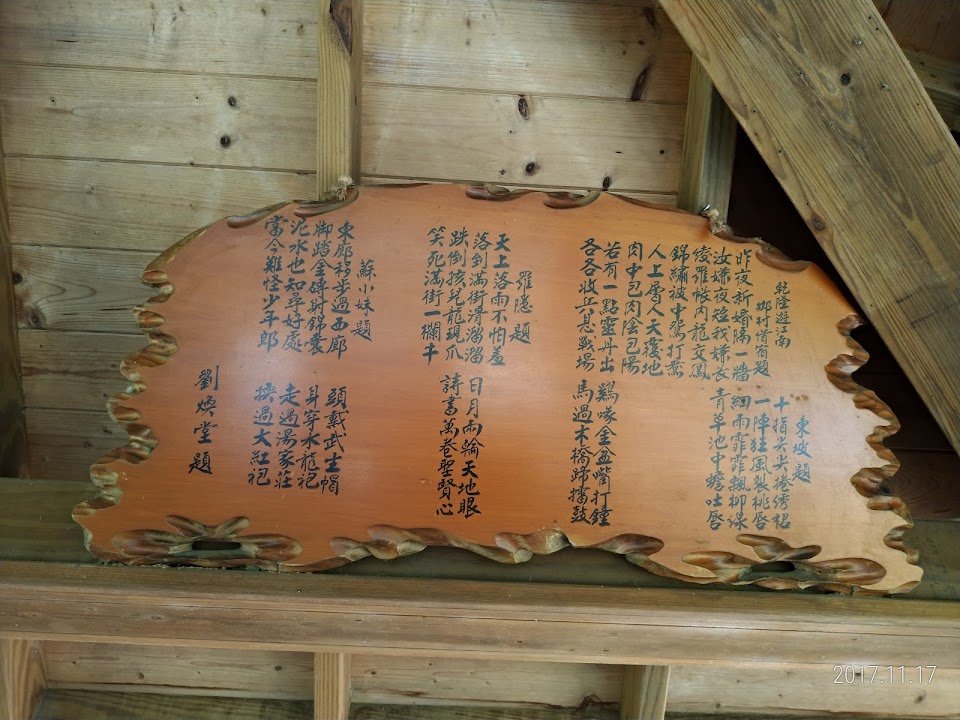 乾隆遊江南
鄉村借宿題
昨夜新婚隔一牆
汝嫌夜短我嫌長
綾羅帳內龍交鳳
錦繡被中鴛打鴦
人上層人天覆地
肉中包肉陰包陽
若有一點靈丹出
各各收兵息戰場
東坡題
十指尖尖捲綉
一陣狂風裂桃唇
細雨霏霏飄柳綠
青草池中蟾吐唇
羅隱題
天上落雨不怕羞
落到滿街滑溜溜
跌倒孩兒龍現爪
笑死滿街一欄牛
雞啄金盆嘴打鐘
馬過木橋蹄擂鼓
日月兩輪天地眼
詩書萬卷聖賢心
蘇小妹題
東廊移步過西廊
腳踏金磚射錦囊
泥水也知尋好處
當今難怪少年郎
頭戴武士帽
身穿水龍袍
走過湯家莊
挾過大紅袍
劉煥堂題
2017.11.17